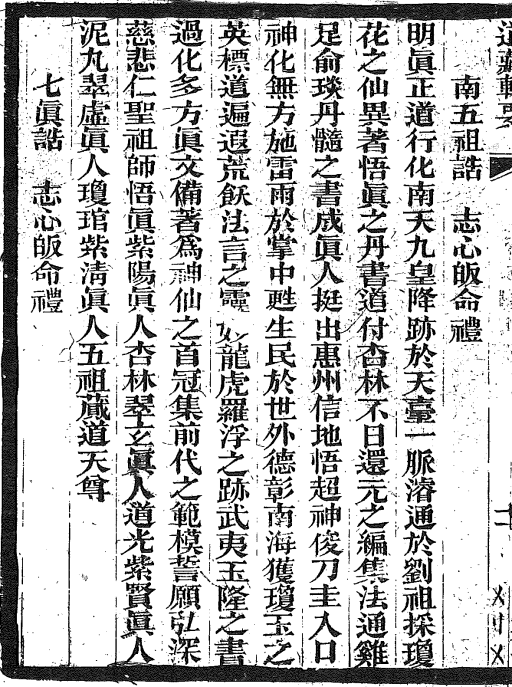 道藏輯要
南五祖誥　志心皈命禮
明眞正道行化南天九皇降跡於天臺一脈濬通於劉祖採瓊
花之仙異著悟眞之丹書道付杏林不日還元之編集法通雞
足俞琰丹髓之書成眞人挺出惠州信地悟超神俊刀圭入口
神化無方施雷雨於掌中甦生民於世外德彰南海獲瓊玉之
英標道遍遐荒飫法言之霑　龍虎羅浮之跡武夷玉隆之書
過化多方眞文備著爲神仙之首冠集前代之範模誓願弘深
慈悲仁聖祖師悟眞紫陽眞人杏林翠玄眞人道光紫賢眞人
泥丸翠虛眞人瓊琯紫淸眞人五祖藏道天尊
七眞誥　志心皈命禮